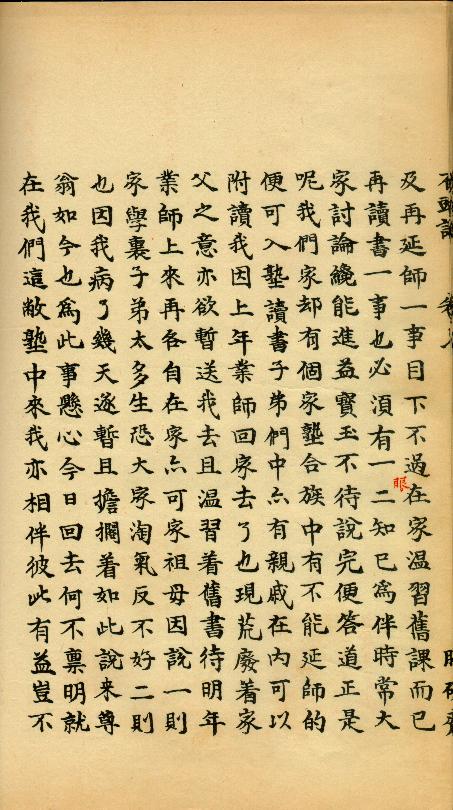 及再延師一事目下不過在家温習舊課而已
眼
再讀書一事也必須有一二知已爲伴時常大
家討論纔能進益寶玉不待說完便答道正是
呢我們家却有個家塾合族中有不能延師的
便可入塾讀書子弟們中亦有親戚在內可以
附讀我因上年業師回家去了也現荒廢著家
父之意亦欲暫送我去且温習着舊書待明年
業師上來再各自在家亦可家祖母因說一則
家學裏子弟太多生恐大家淘氣反不好二則
也因我病了幾天遂暫且擔擱着如此說來尊
翁如今也爲此事懸心今日回去何不禀明就
在我們這敝塾中來我亦相伴彼此有益豈不